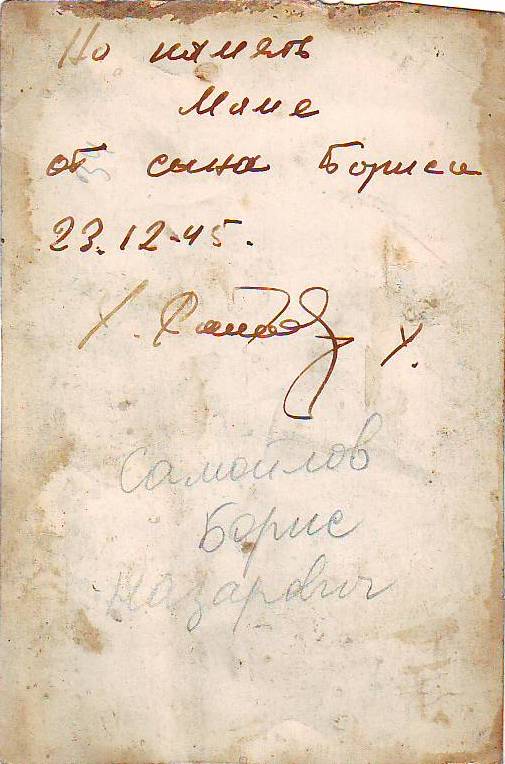 На память
Маме
от сына Бориса
23.12-45.
Х. Х.
Самойлов
Борис
Назарович